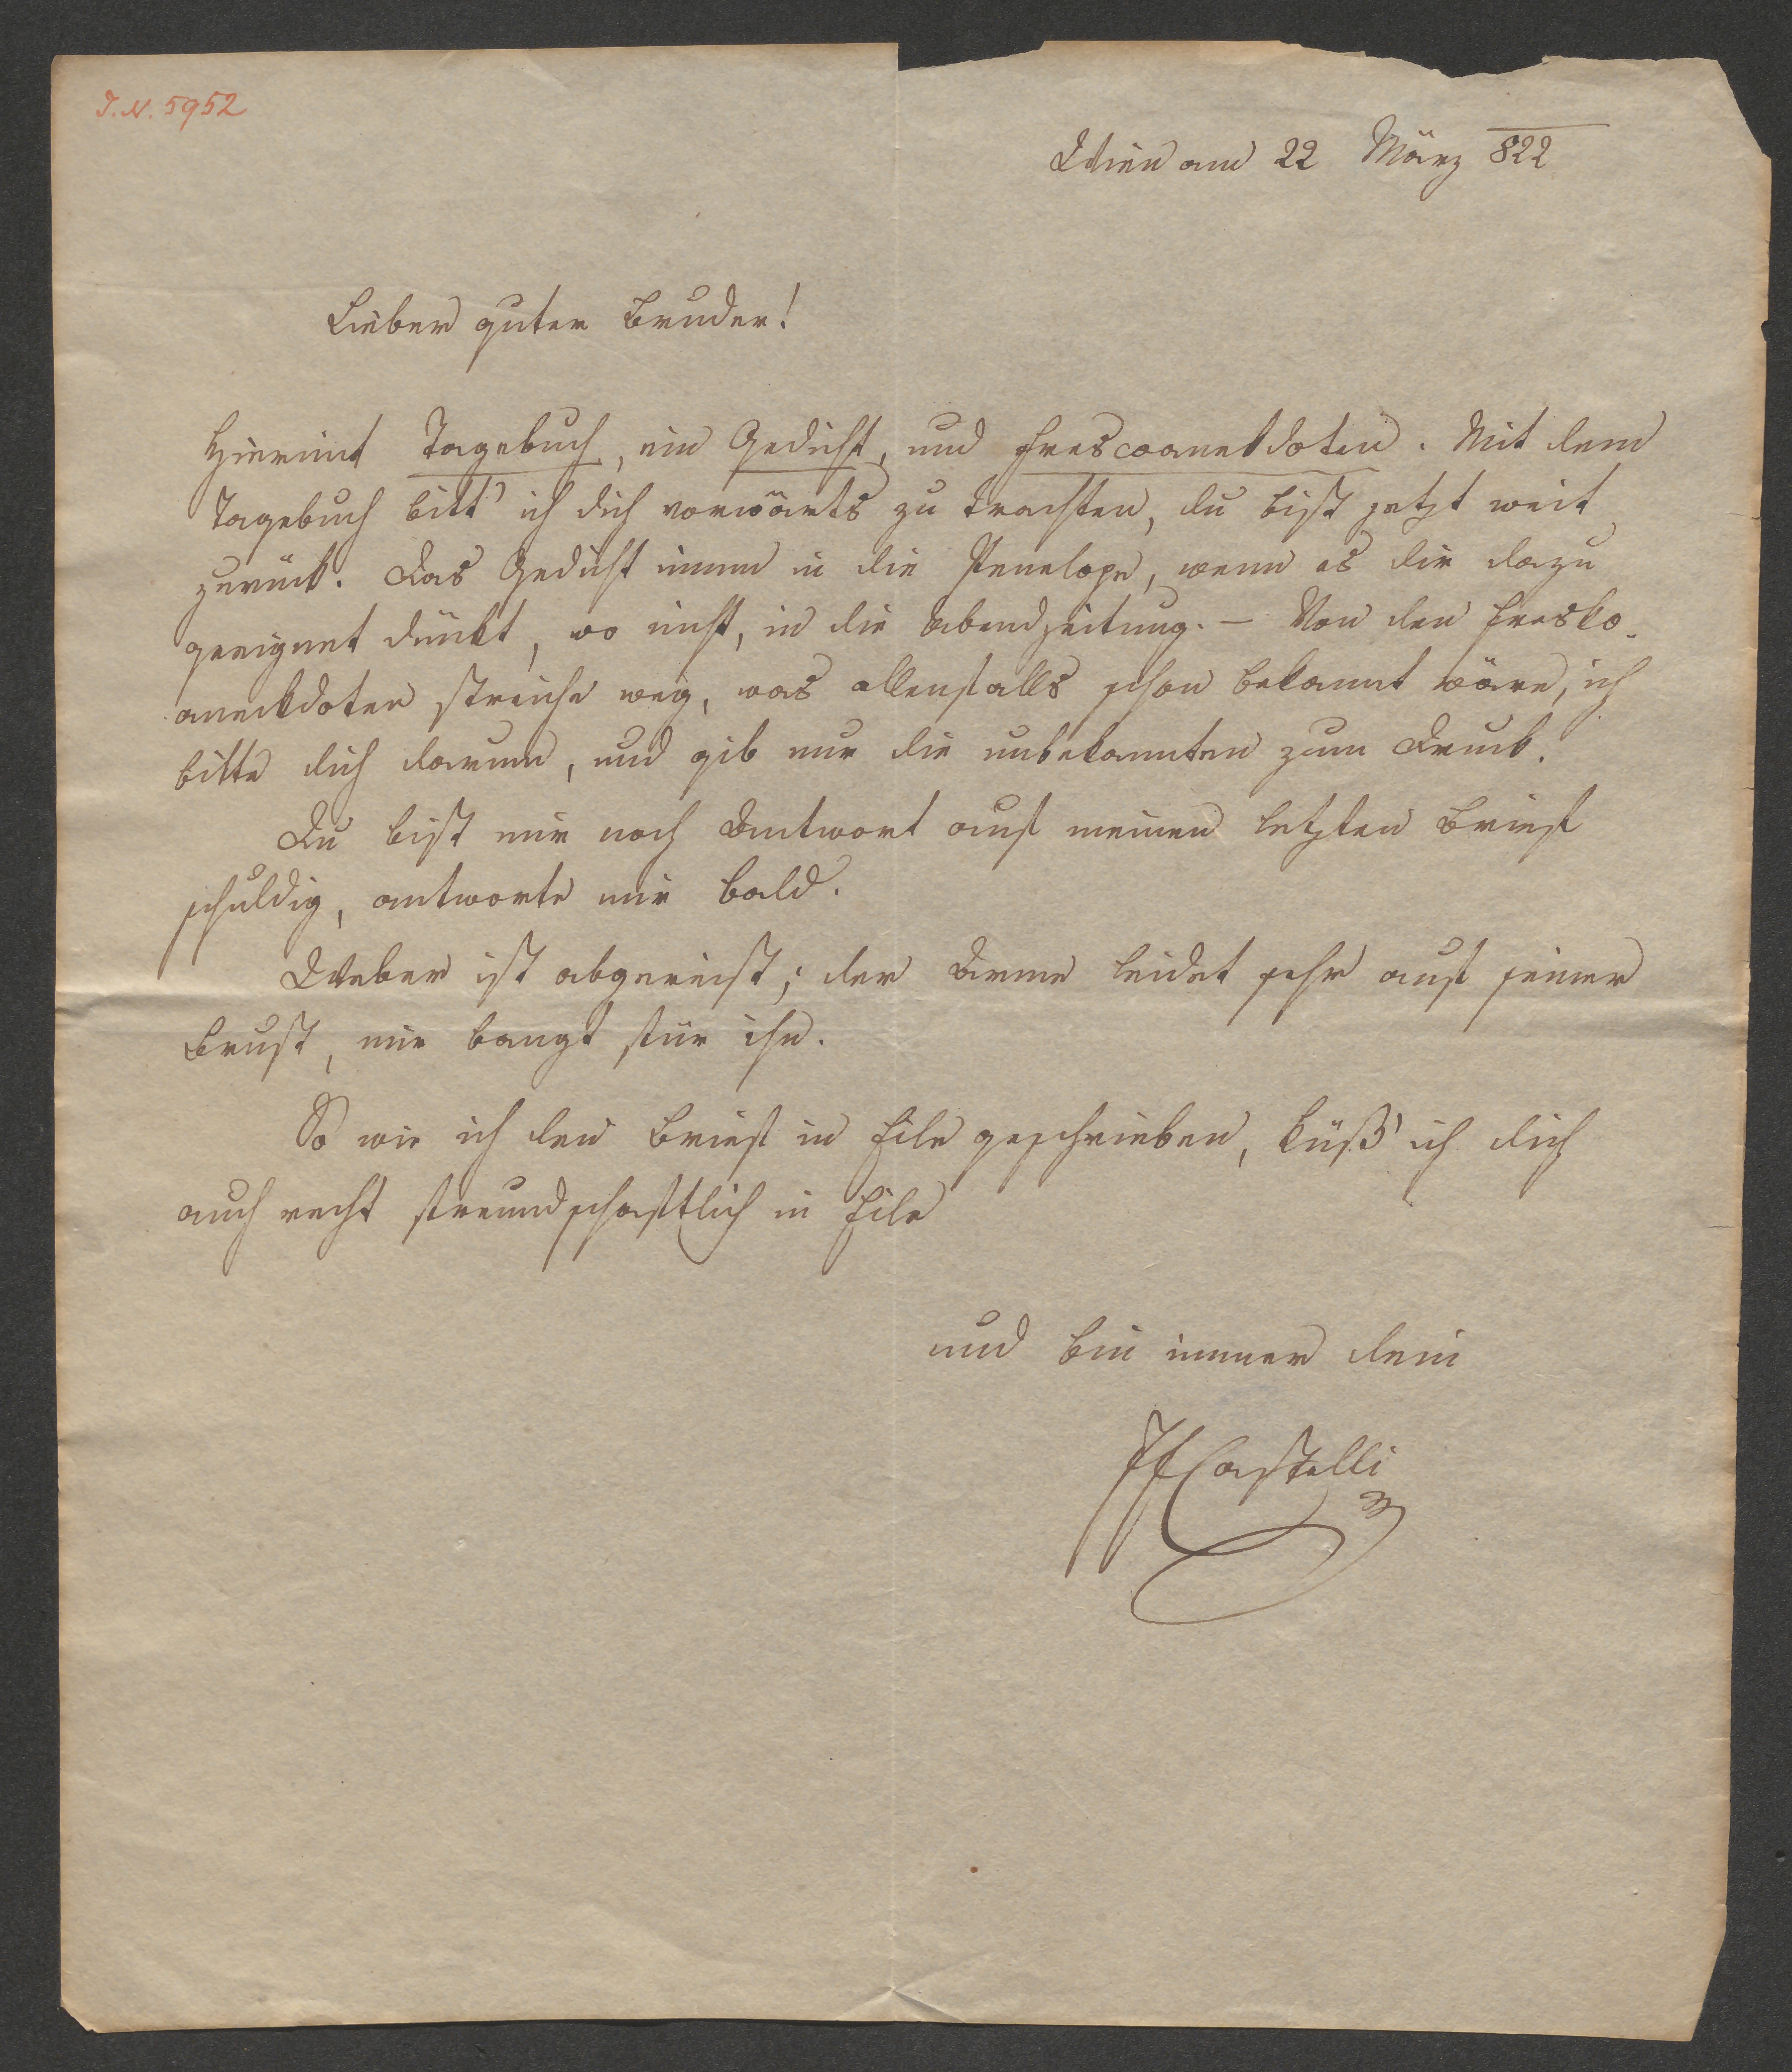 J. N. 5952
Wien am 22 März 822
Lieber guter Bruder!
Hiermit Tagebuch, ein Gedicht, und Frescoanekdoten. Mit dem
Tagebuch bitt' ich dich vorwärts zu trachten, du bist jetzt weit
zurück. Das Gedicht nimm in die Penelope, wenn es dir dazu
geeignet dünkt, wo nicht, in die Abendzeitung. – Von den Fresko-
aneckdoten streiche weg, was allenfalls schon bekannt wäre, ich
bitte dich darum, und gib nur die unbekannten zum Druck.
Du bist mir noch Antwort auf meinen letzten Brief
schuldig, antworte mir bald.
Weber ist abgereist; der Arme leidet sehr auf seiner
Brust, mir bangt für ihn.
So wie ich den Brief in Eile geschrieben, küß' ich dich
auch recht freundschaftlich in Eile
und bin immer dein
IFCastelli